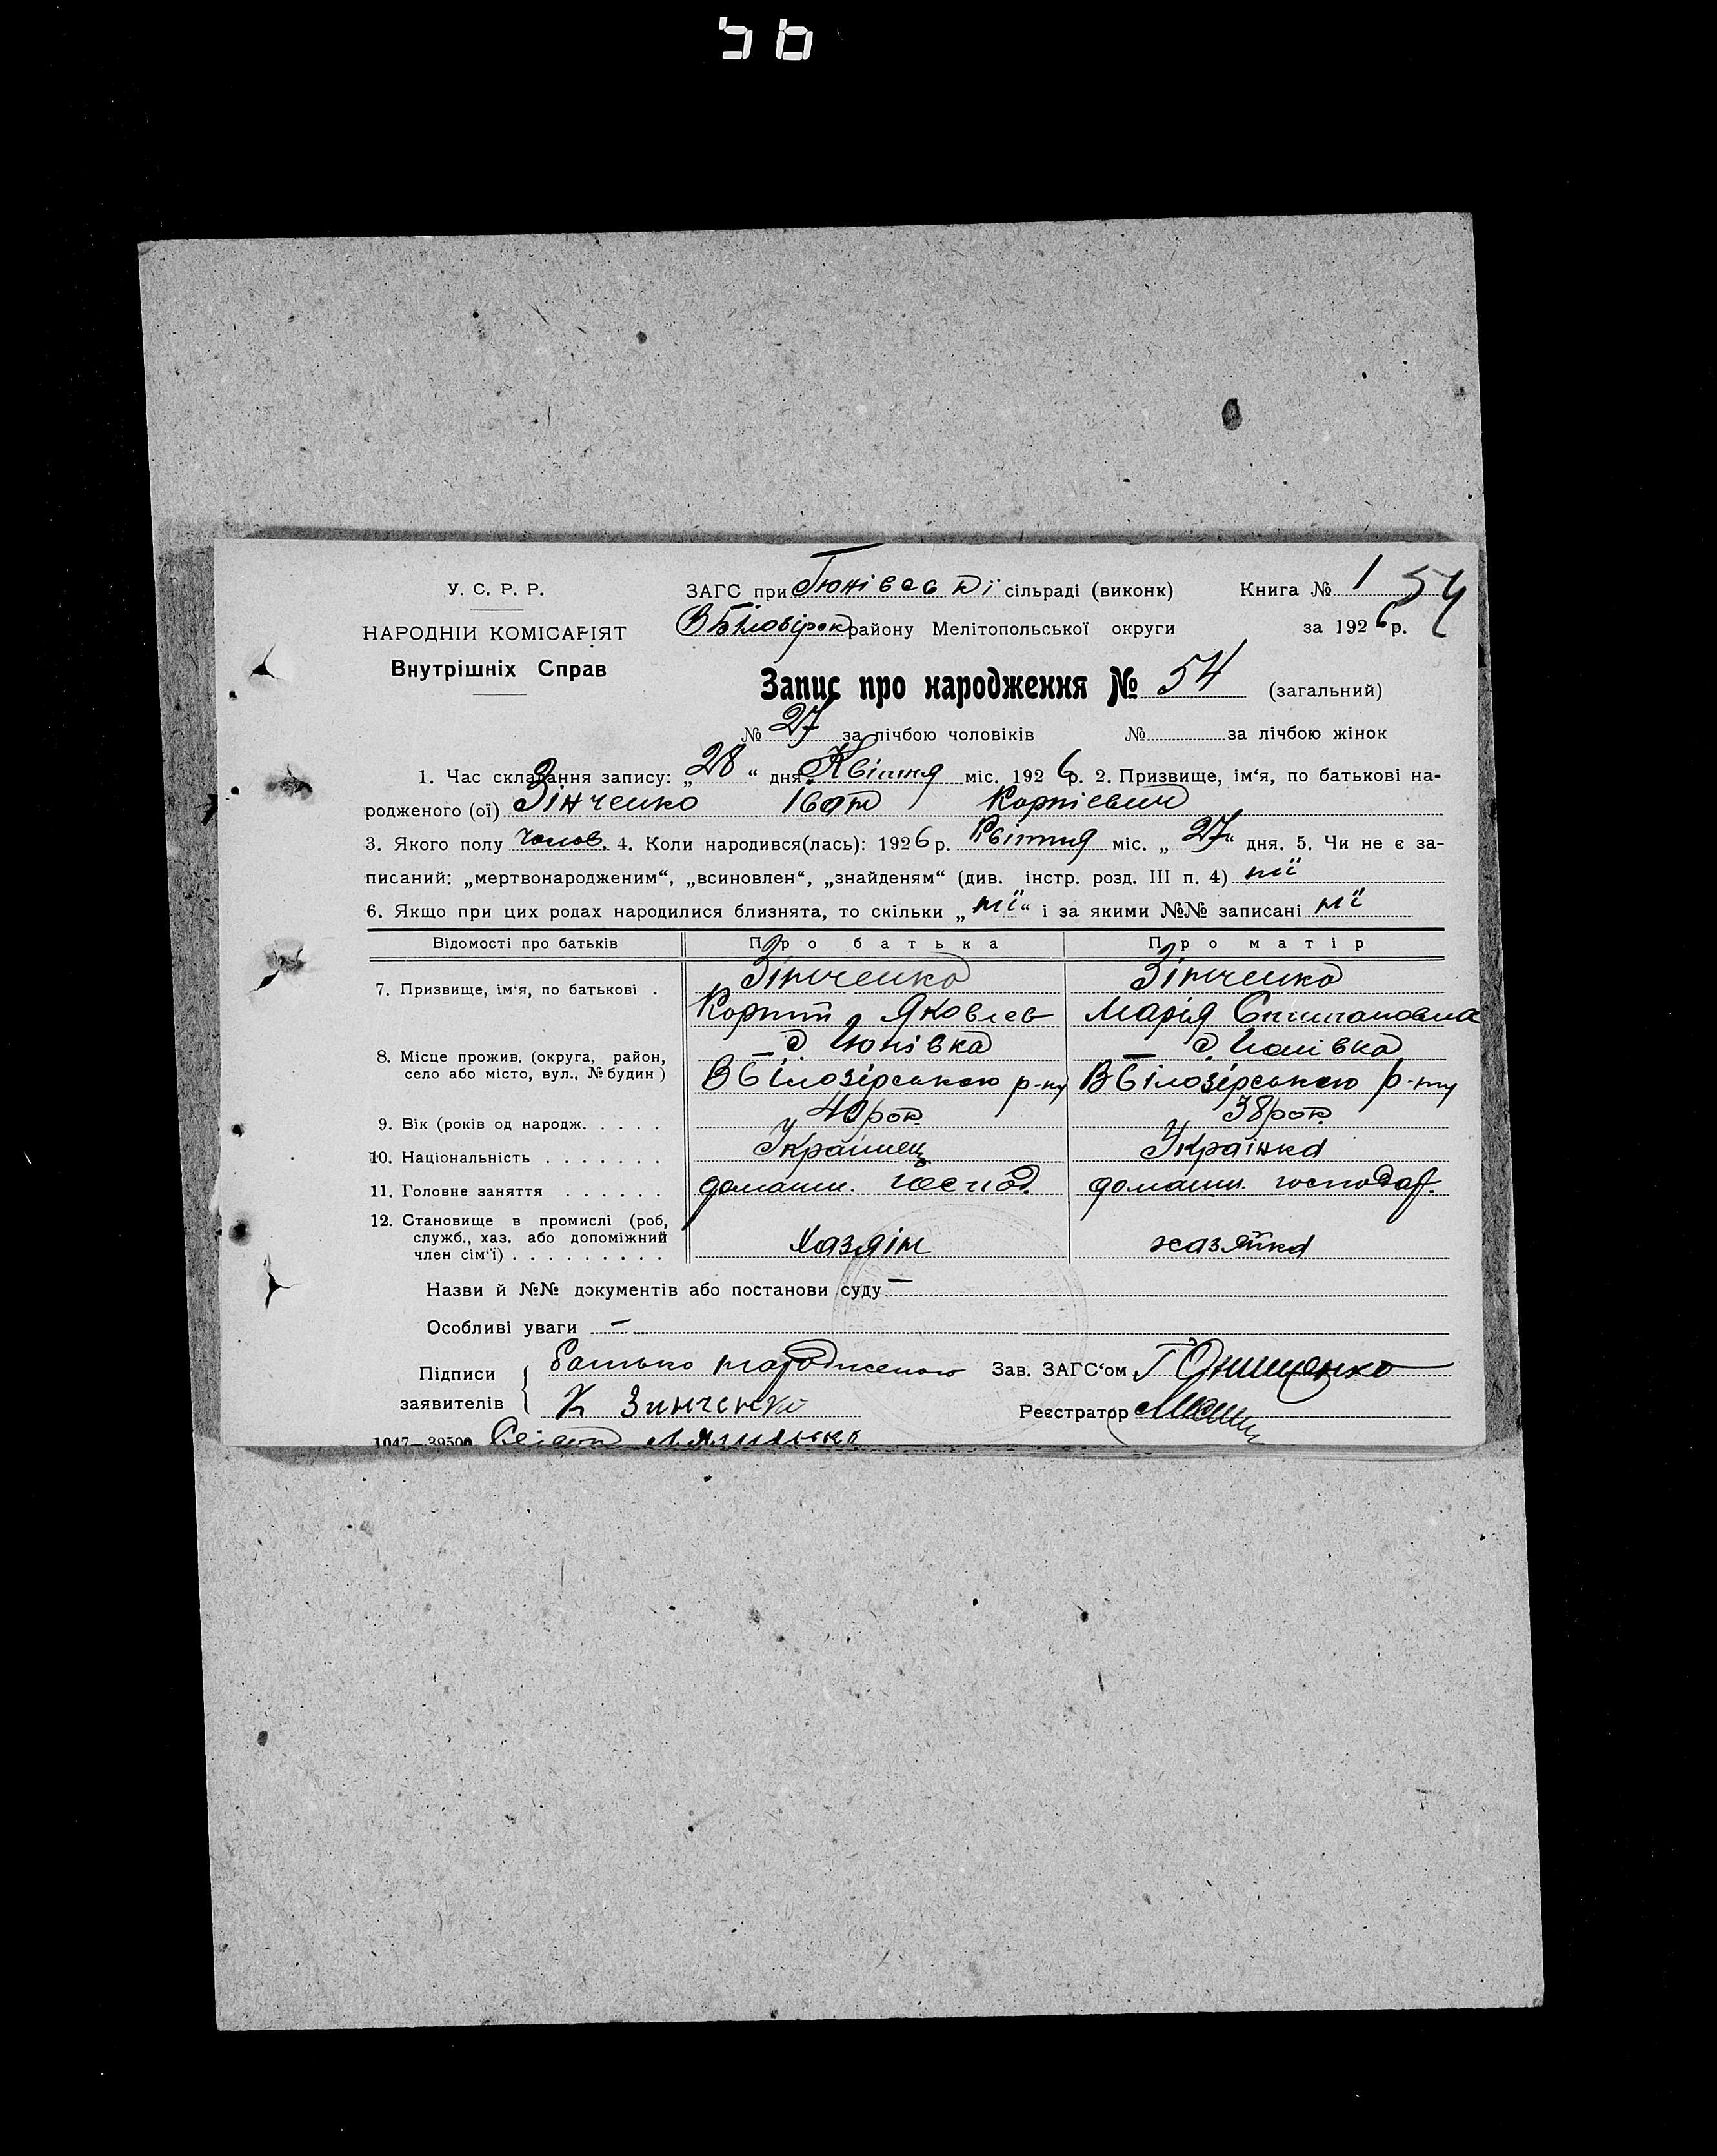 56
У. С. Р. Р.
НАРОДНІЙ КОМІСАРІЯТ
Внутрішніх Справ
ЗАГС при Гюнівськїй сільраді (виконк)
Книга № 1 54
В Білозірськ району Мелітопольської округи
за 1926 р.
Запис про народження № 54 (загальний)
№ 27 за лічбою чоловіків № за лічбою жінок
1. Час складання запису: „28“ дня Квітня міс. 1926 р. 2. Призвище, ім‘я, по батькові на-
родженого (ої) Зінченко Іван Корнієвич
3. Якого полу чолов. 4. Коли народився(лась): 1926 р. Квітня міс. „27“ дня. 5. Чи не є за-
писаний: „мертвонародженим“, „всиновлен“, „знайденям“ (див. інстр. розд. III п. 4) нії
6. Якщо при цих родах народилися близнята, то скільки „нії“ і за якими №№ записані нії
Відомости про батьків Про батька Про матір
7. Призвище, ім‘я, по батькові . Зінченко Зінченко
Корній Яковлев Марія Степановна
8. Місце прожив. (округа, район, с. Гюнівка с. Гюнівка
село або місто, вул., № будин) ВБілозірського р-ну ВБілозірського р-ну
9. Вік (років од народж. . . . . 40 рок. 38 рок.
10. Національність . . . . . . . Українец Українка
11. Головне заняття . . . . . . домашн. господ. домашн. господар.
12. Становище в промислі (роб,
служб., хаз. або допоміжний
член сім‘ї) . . . . . . . . . Хазяін хазяйка
Назви й №№ документів або постанови суду —
Особливі уваги —
Підписи заявителів { батько народженого
К Зинченко
Зав. ЗАГС‘ом Г Онищенко
Реєстратор
1047—39500